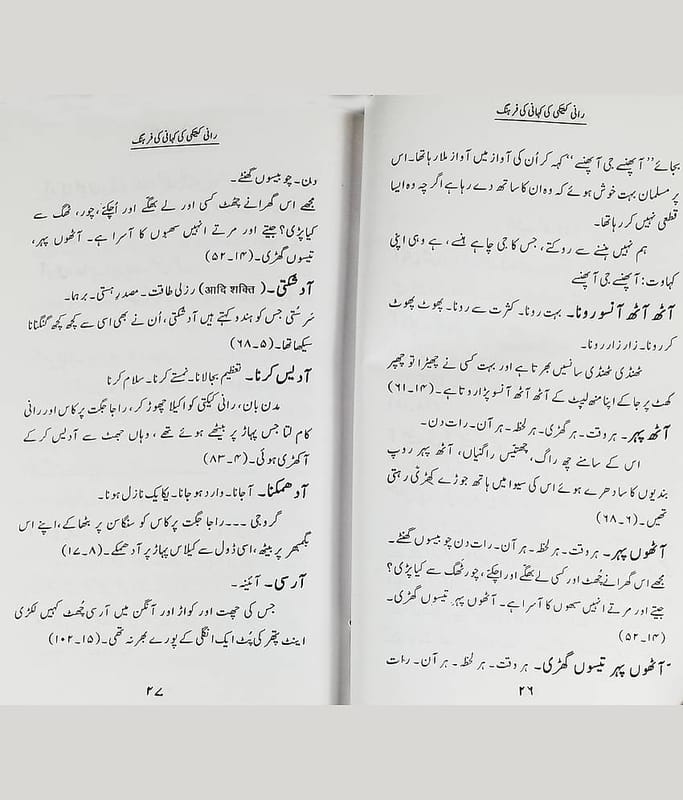 رانی کیتکی کی کہانی کی فرہنگ
بجائے "آ پھنسے جی آ پھنسے" کہہ کر اُن کی آواز میں آواز ملا رہا تھا۔ اس
پر مسلمان بہت خوش ہوئے کہ وہ ان کا ساتھ دے رہا ہے اگر چہ وہ ایسا
قطعی نہیں کر رہا تھا۔
ہم نہیں ہنسنے سے روکتے، جس کا جی چاہے ہنسے، ہے وہی اپنی
کہاوت: آ پھنسے جی آ پھنسے
آٹھ آٹھ آنسو رونا۔ بہت رونا۔ کثرت سے رونا۔ پھوٹ پھوٹ
کر رونا۔ زار زار رونا۔
ٹھنڈی ٹھنڈی سانسیں بھرتا ہے اور بہت کسی نے چھیڑا تو چھپر
کھٹ پر جا کے اپنا منھ لپیٹ کے آٹھ آٹھ آنسو پڑا روتا ہے۔ (۱۴۔۶۱)
آٹھ پہر۔ ہر وقت۔ ہر گھڑی۔ ہر لحظہ۔ ہر آن۔ رات دن۔
اس کے سامنے چھ راگ، چھتیس راگنیاں، آٹھ پہر روپ
بندیوں کا سا دھرے ہوئے اس کی سیوا میں ہاتھ جوڑے کھڑی رہتی
تھیں۔ (۶۔۶۸)
آٹھوں پہر۔ ہر وقت۔ ہر لحظہ۔ ہر آن۔ رات دن چو بیسوں گھنٹے۔
مجھے اس گھرانے چھُٹ اور کسی لے بھگّے اور اچکّے، چور ٹھگ سے کیا پڑی؟
جیتے اور مرتے انہیں سبھوں کا آسرا ہے۔ آٹھوں پہر تیسوں گھڑی۔
(۱۴۔۵۲)
آٹھوں پہر تیسوں گھڑی۔ ہر وقت۔ ہر لحظہ۔ ہر آن۔ رات
۲۶
رانی کیتکی کی کہانی کی فرہنگ
دن۔ چو بیسوں گھنٹے۔
مجھے اس گھرانے چھٹ کسی اور لے بھگّے اور اچکّے، چور، ٹھگ سے
کیا پڑی؟ جیتے اور مرتے انہیں سبھوں کا آسرا ہے۔ آٹھوں پہر،
تیسوں گھڑی۔ (۱۴۔۵۲)
آد شکتی۔ (आदि शक्ति) ازلی طاقت۔ مصدرِ ہستی۔ برہما۔
سُرستی جس کو ہندو کہتے ہیں آد شکتی، اُن نے بھی اسی سے کچھ کچھ گنگنانا
سیکھا تھا۔ (۵۔۶۸)
آدیس کرنا۔ تعظیم بجا لانا۔ نمستے کرنا۔ سلام کرنا
مدن بان، رانی کیتکی کو اکیلا چھوڑ کر، راجا جگت پرکاس اور رانی
کام لتا جس پہاڑ پر بیٹھے ہوئے تھے، وہاں جھٹ سے آدیس کر کے
آ کھڑی ہوئی۔ (۴۔۸۳)
آدھمکنا۔ آجانا۔ وارد ہو جانا۔ یکا یک نازل ہونا۔
گرو جی ۔۔۔ راجا جگت پرکاس کو سنگاسن پر بٹھا کے، اپنے اس
بگھمبر پر بیٹھ، اسی ڈول سے کیلاس پہاڑ پر آدھمکے۔ (۸۔۱۷)
آرسی۔ آئینہ۔
جس کی چھت اور کواڑ اور آنگن میں آرسی چُھٹ کہیں لکڑی
اینٹ پتھر کی پُٹ ایک انگلی کے پورے بھر نہ تھی۔ (۱۵۔۱۰۲)
۲۷